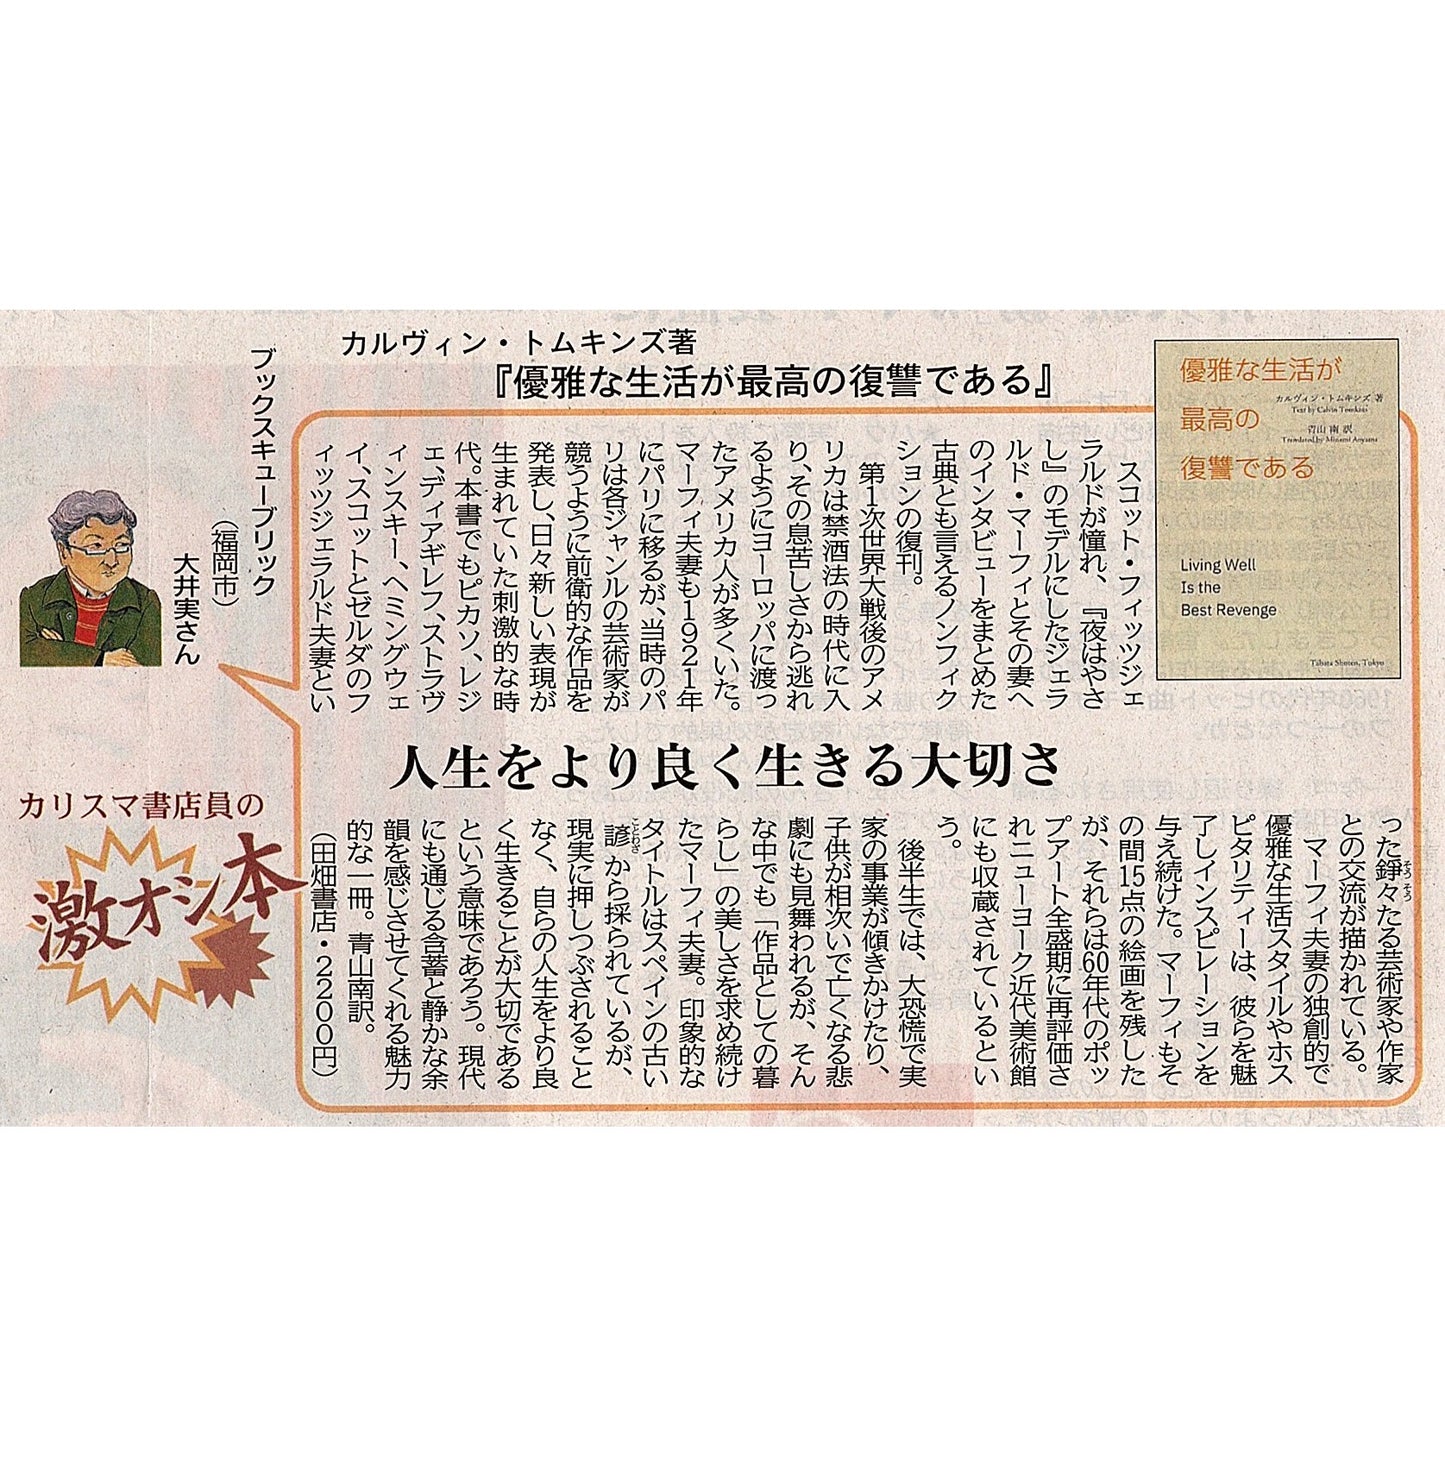 カルヴィン・トムキンズ著
『優雅な生活が最高の復讐である』
優雅な生活が
カルヴィン・トムキンズ 著
Text by Calvin Tomkins
最高の
青山 南 訳
Translated by Minami Aoyama
復讐である
Living Well
Is the
Best Revenge
Tabata Shoten, Tokyo
スコット・フィッツジェ
ラルドが憧れ、『夜はやさ
し』のモデルにしたジェラ
ルド・マーフィとその妻へ
のインタビューをまとめた
古典とも言えるノンフィク
ションの復刊。
第1次世界大戦後のアメ
リカは禁酒法の時代に入
り、その息苦しさから逃れ
るようにヨーロッパに渡っ
たアメリカ人が多くいた。
マーフィ夫妻も1921年
にパリに移るが、当時のパ
リは各ジャンルの芸術家が
競うように前衛的な作品を
発表し、日々新しい表現が
生まれていた刺激的な時
代。本書でもピカソ、レジ
ェ、ディアギレフ、ストラヴ
ィンスキー、ヘミングウェ
イ、スコットとゼルダのフ
ィッツジェラルド夫妻とい
人生をより良く生きる大切さ
った錚々たる芸術家や作家
そうそう
との交流が描かれている。
マーフィ夫妻の独創的で
優雅な生活スタイルやホス
ピタリティーは、彼らを魅
了しインスピレーションを
与え続けた。マーフィもそ
の間15点の絵画を残した
が、それらは60年代のポッ
プアート全盛期に再評価さ
れニューヨーク近代美術館
にも収蔵されているとい
う。
後半生では、大恐慌で実
家の事業が傾きかけたり、
子供が相次いで亡くなる悲
劇にも見舞われるが、そん
な中でも「作品としての暮
らし」の美しさを求め続け
たマーフィ夫妻。印象的な
タイトルはスペインの古い
諺から採られているが、
ことわざ
現実に押しつぶされること
なく、自らの人生をより良
く生きることが大切である
という意味であろう。現代
にも通じる含蓄と静かな余
韻を感じさせてくれる魅力
的な一冊。青山南訳。
（田畑書店・2200円）
ブックスキューブリック
（福岡市）
大井実さん
カリスマ書店員の
激オシ本